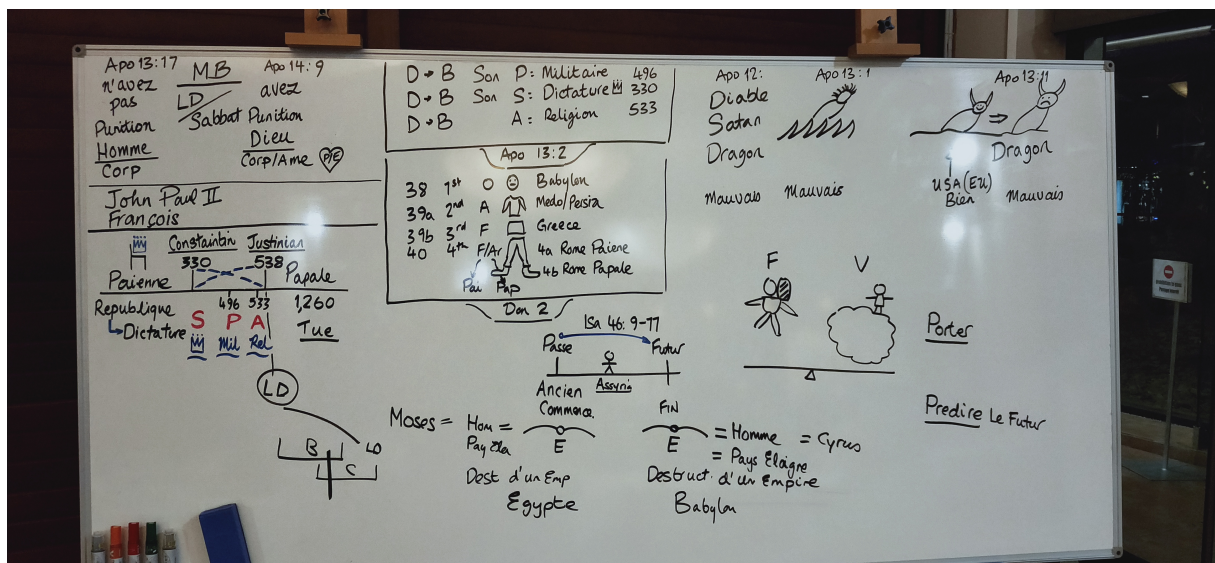 Apo 13:17
n'avez
pas
Punition
Homme
Corp
MB
LD
Sabbat
Apo 14:9
avez
Punition
Dieu
Corp/Ame P/E
John Paul II
François
Constaintin Justinian
330 538
Paienne Papale
496 533 1,260
Republique
Dictature
S P A
Mil Rel
Tue
LD
B LD
C
D→B Son P: Militaire 496
D→B Son S: Dictature 330
D→B A: Religion 533
Apo 13:2
38 1st O Babylon
39a 2nd A Medo/Persia
39b 3rd F Greece
40 4th F/Ar 4a Rome Paiene
4b Rome Papale
Pai Pap
Dan 2
Isa 46:9-11
Passe Futur
Assyria
Ancien
Commence
FIN
Moses = Hom =
Pay Ela
E
Dest d'un Emp
Egypte
E
= Homme = Cyrus
= Pays Eloigre
Destruct. d'un Empire
Babylon
Apo 12:
Diable
Satan
Dragon
Mauvais
Apo 13:1
Mauvais
Apo 13:11
Dragon
USA (EU)
Bien
Mauvais
F V
Porter
Predire Le Futur